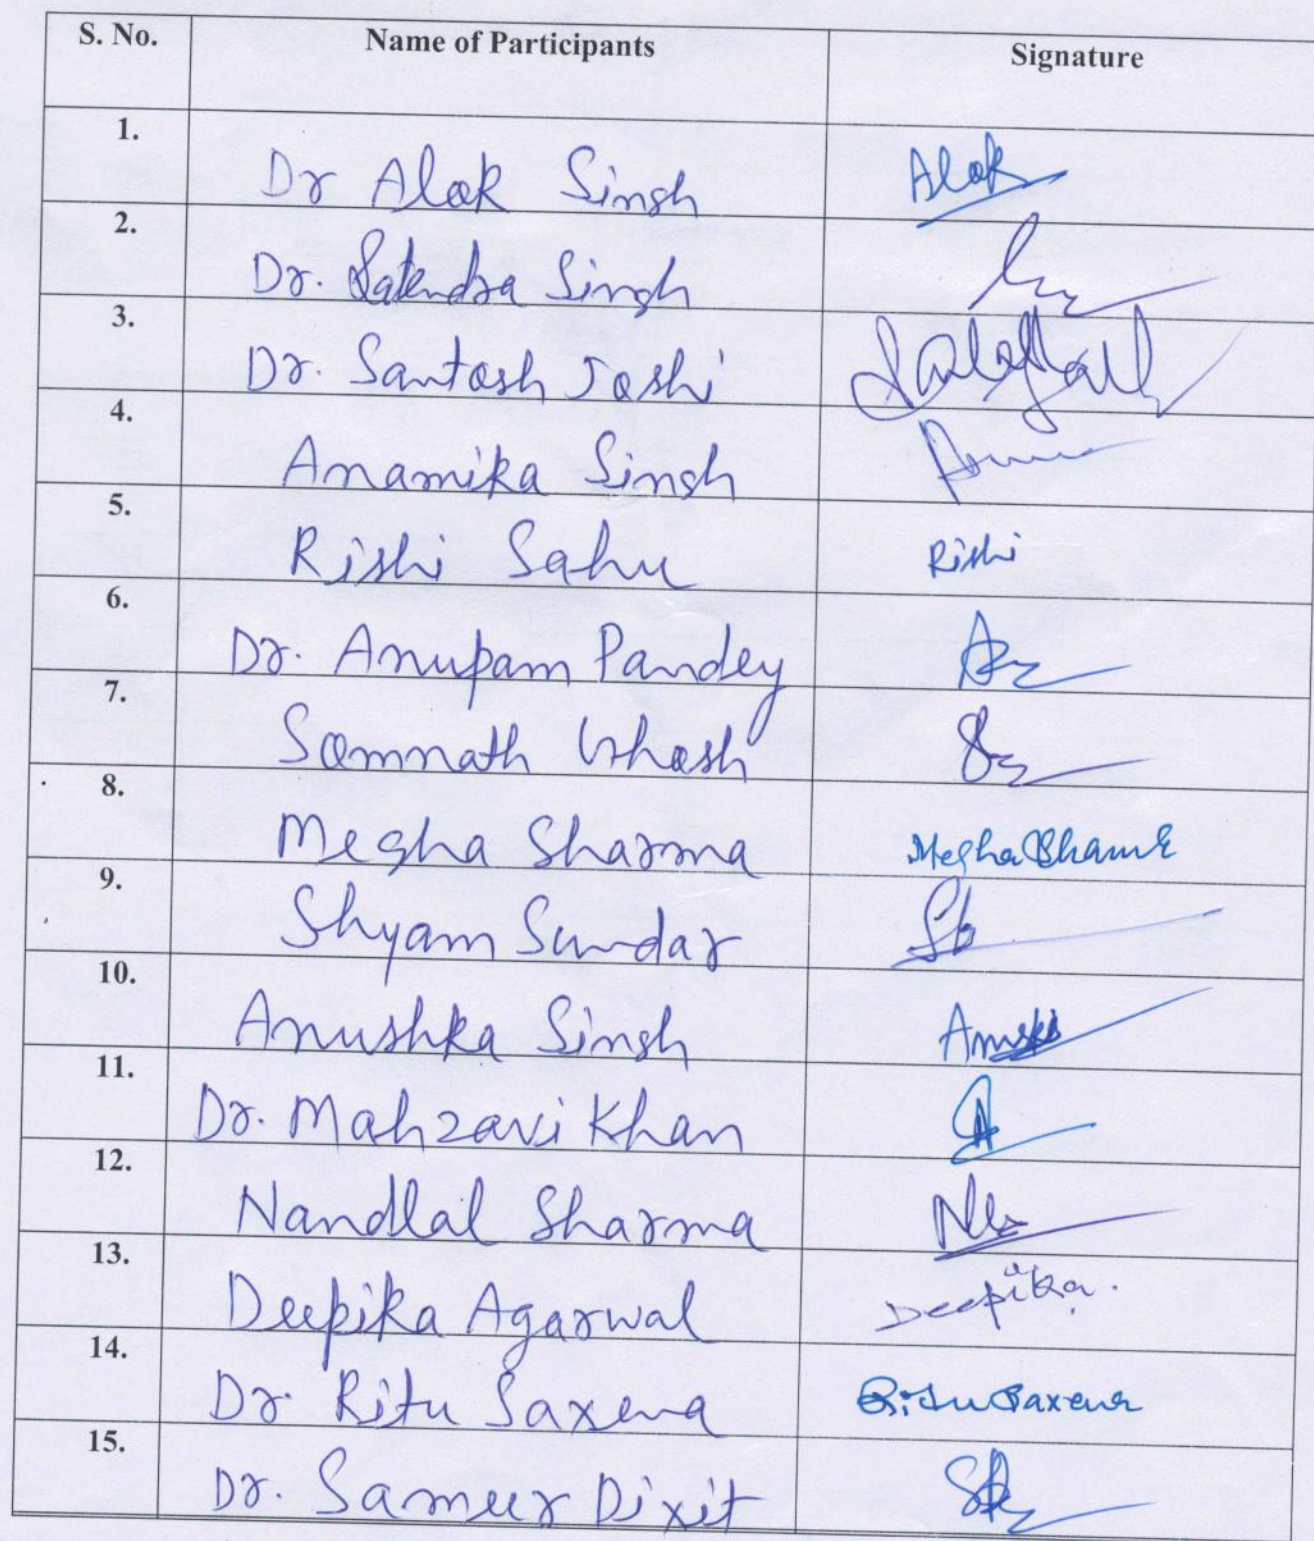 S. No. Name of Participants Signature
1. Dr Alok Singh Alok
2. Dr. Satendra Singh
3. Dr. Santosh Joshi
4. Anamika Singh
5. Rishi Sahu Rishi
6. Dr. Anupam Pandey
7. Somnath Ghosh
8. Megha Sharma Megha Sharma
9. Shyam Sundar
10. Anushka Singh
11. Dr. Mahzavi Khan
12. Nandlal Sharma
13. Deepika Agarwal Deepika.
14. Dr. Ritu Saxena Ritu Saxena
15. Dr. Sameer Dixit